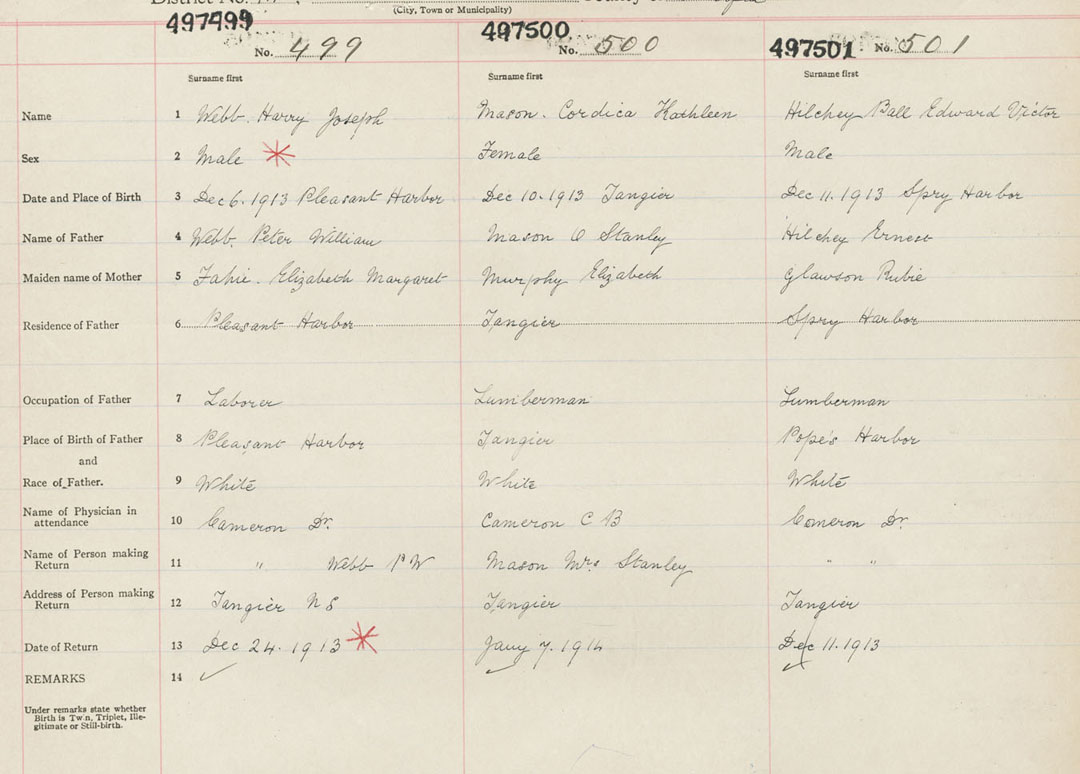 (City, Town or Municipality)
497499 497500 497501
No. 499 No. 500 No. 501
Surname first Surname first Surname first
Name 1 Webb. Harry Joseph Mason. Cordica Kathleen Hilchey Ball Edward Victor
Sex 2 Male Female Male
Date and Place of Birth 3 Dec 6. 1913 Pleasant Harbor Dec 10. 1913 Tangier Dec 11. 1913 Spry Harbor
Name of Father 4 Webb. Peter William Mason O Stanley Hilchey Ernest
Maiden name of Mother 5 Fahie. Elizabeth Margaret Murphy Elizabeth Glawson Rubie
Residence of Father 6 Pleasant Harbor Tangier Spry Harbor
Occupation of Father 7 Laborer Lumberman Lumberman
Place of Birth of Father 8 Pleasant Harbor Tangier Pope's Harbor
and
Race of Father. 9 White White White
Name of Physician in
attendance 10 Cameron Dr. Cameron C B Comeron Dr.
Name of Person making
Return 11 " Webb P W Mason Mrs Stanley " "
Address of Person making
Return 12 Tangier N S Tangier Tangier
Date of Return 13 Dec 24. 1913 Jany 7. 1914 Dec 11. 1913
REMARKS 14
Under remarks state whether
Birth is Twin, Triplet, Ille-
gitimate or Still-birth.